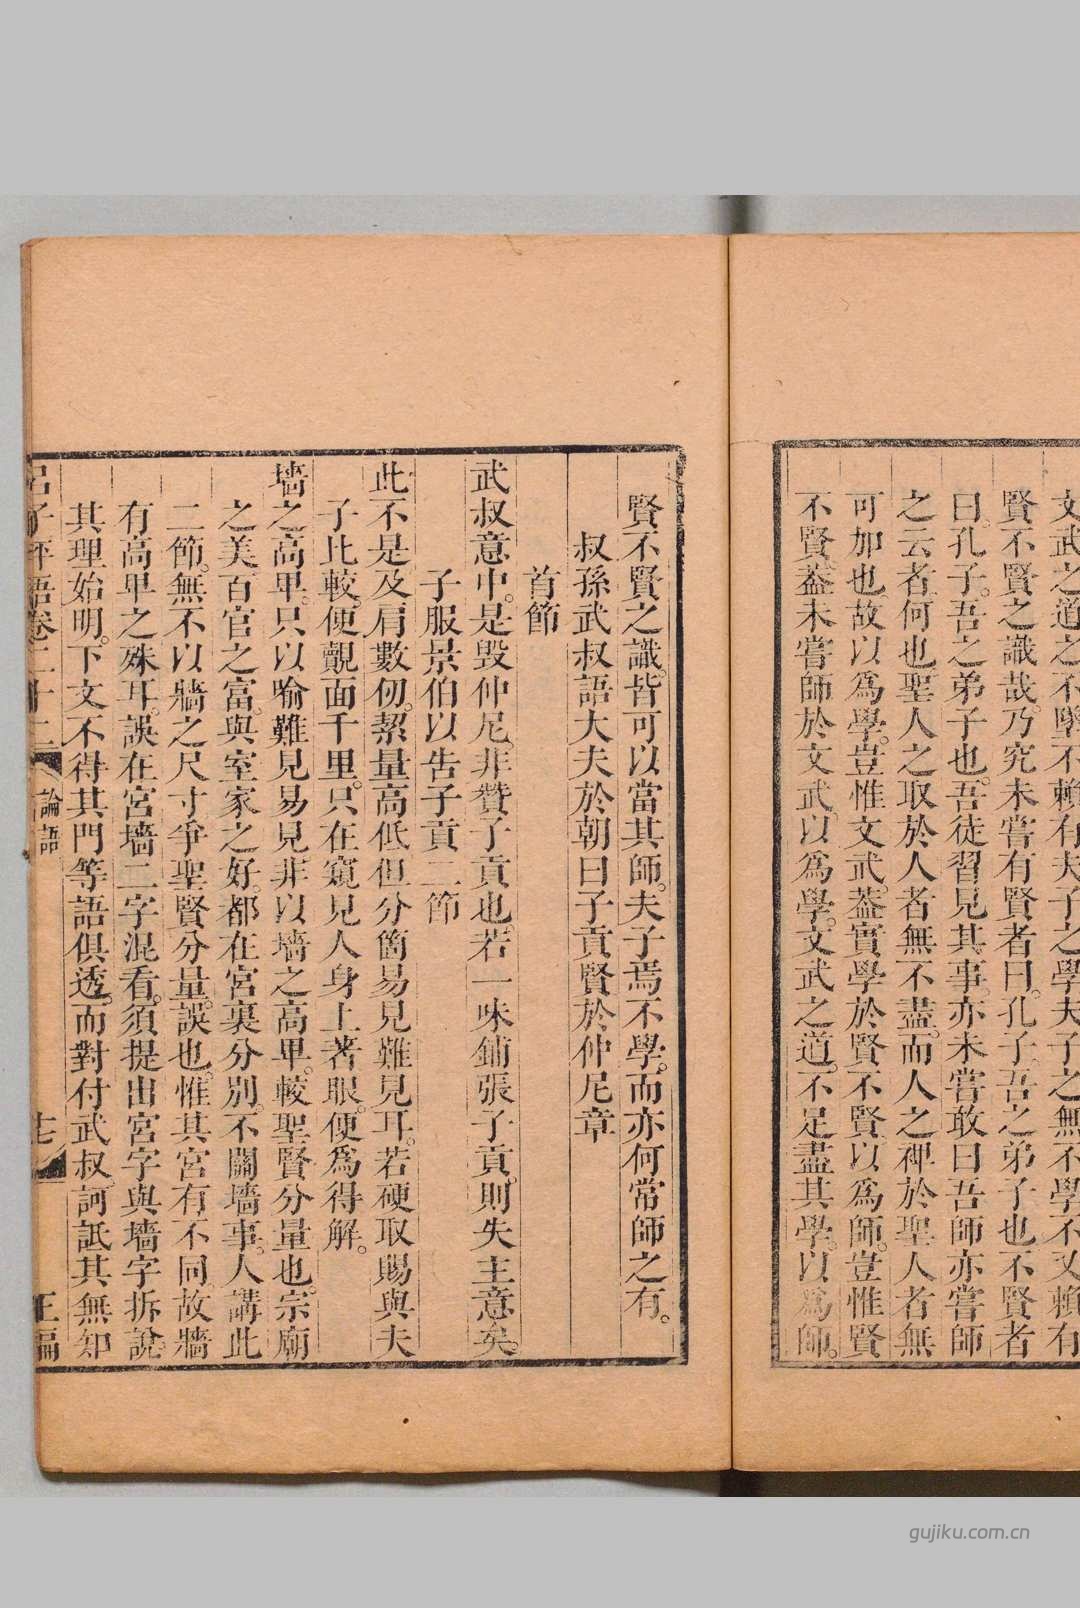 文武之道之不墜不賴有夫子之學夫子之無不學不又賴有
賢不賢之識哉乃究未嘗有賢者曰孔子吾之弟子也不賢者
曰孔子吾之弟子也吾徒習見其事亦未嘗敢曰吾師亦嘗師
之云者何也聖人之取於人者無不盡而人之禆於聖人者無
可加也故以爲學豈惟文武葢實學於賢不賢以爲師豈惟賢
不賢葢未嘗師於文武以爲學文武之道不足盡其學以爲師
賢不賢之識皆可以當其師夫子焉不學而亦何常師之有
叔孫武叔語大夫於朝曰子貢賢於仲尼章
首節
武叔意中是毀仲尼非贊子貢也若一味鋪張子貢則失主意矣
子服景伯以告子貢二節
此不是及肩數仞絜量高低但分箇易見難見耳若硬取賜與夫
子比較便覿面千里只在窺見人身上著眼便爲得解
墻之高畢只以喻難見易見非以墻之高畢較聖賢分量也宗廟
之美百官之富與室家之好都在宮裏分別不關墻事人講此
二節無不以牆之尺寸爭聖賢分量誤也惟其宮有不同故牆
有高畢之殊耳誤在宮墻二字混看須提出宮字與墻字拆說
其理始明下文不得其門等語俱透而對付武叔訶詆其無知
呂子評語卷二十二 論語 正編